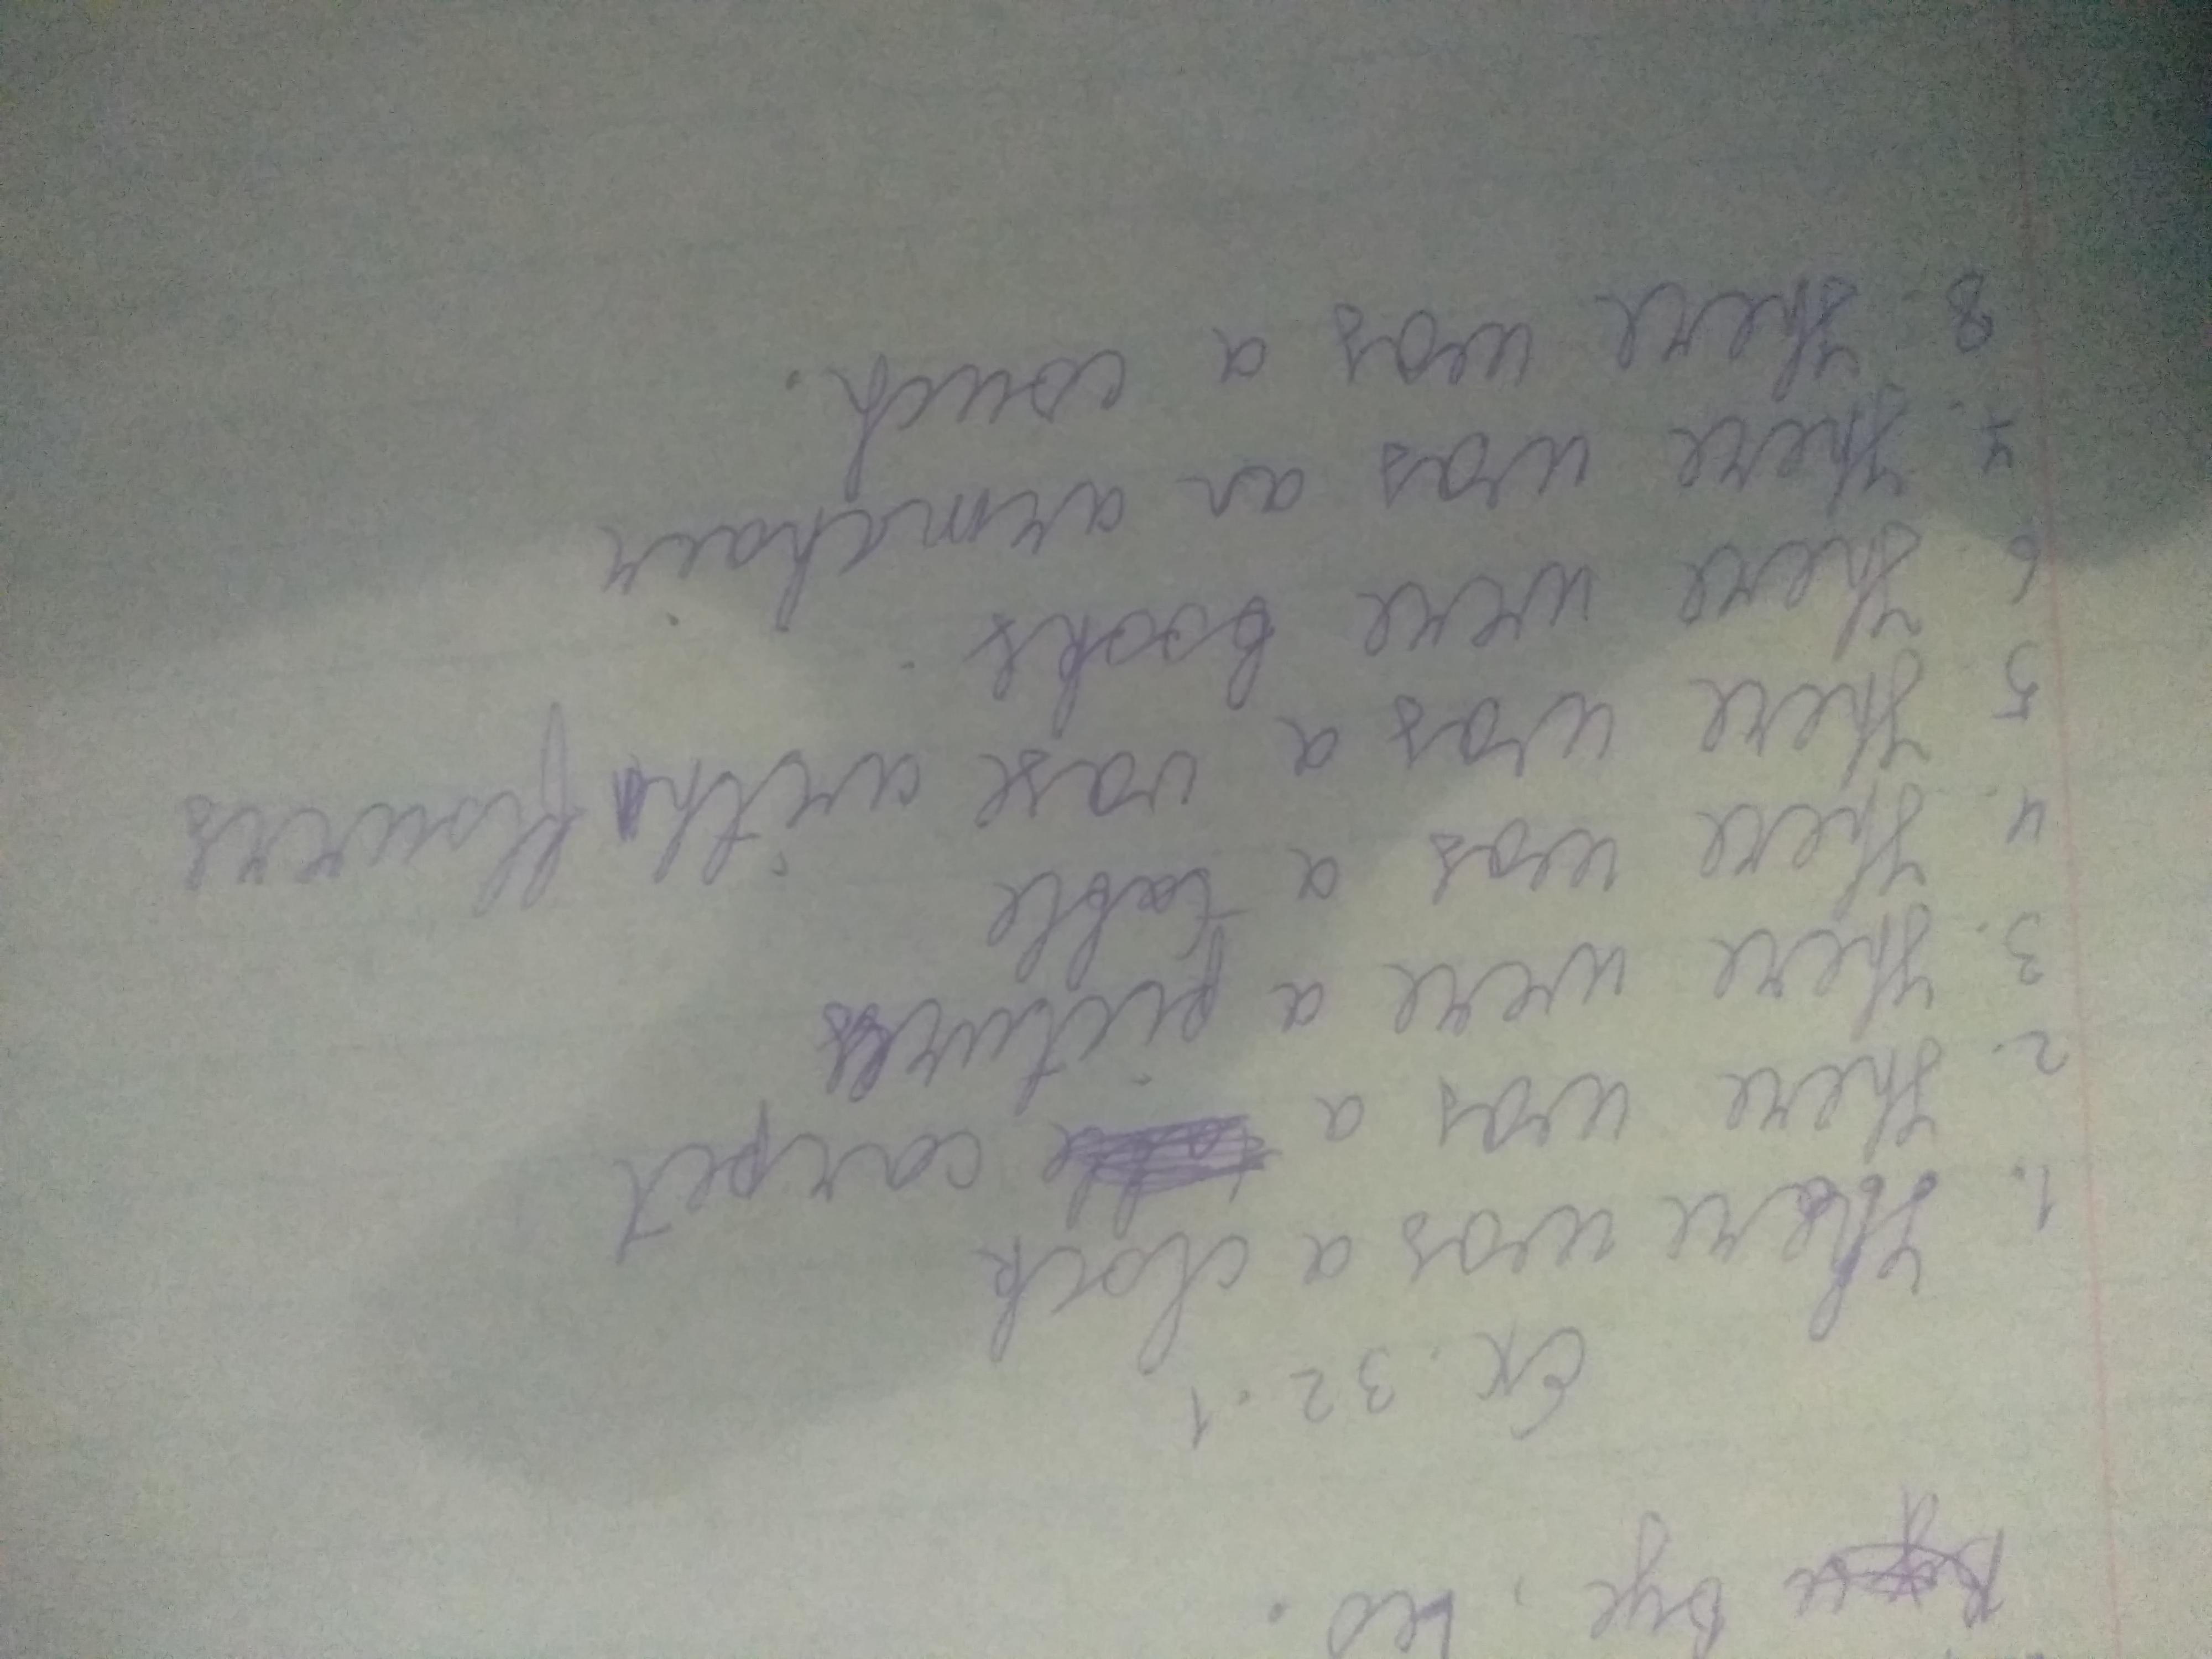 Bye, Leo.
Ex. 32.1
1. There was a clock
2. There was a carpet
3. There were a pictures
4. There was a table
5. There was a vase with flowers
6. There were books.
7. There was an armchair.
8. There was a couch.